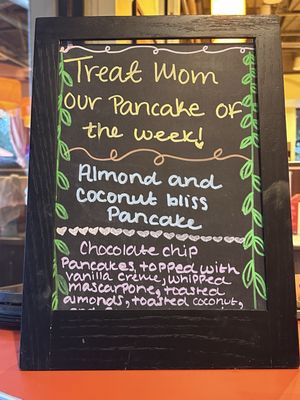 Treat Mom
our Pancake of
the week!
Almond and
Coconut bliss
Pancake
Chocolate chip
Pancakes, topped with
vanilla creme, whipped
mascarpone, toasted
almonds, toasted coconut,